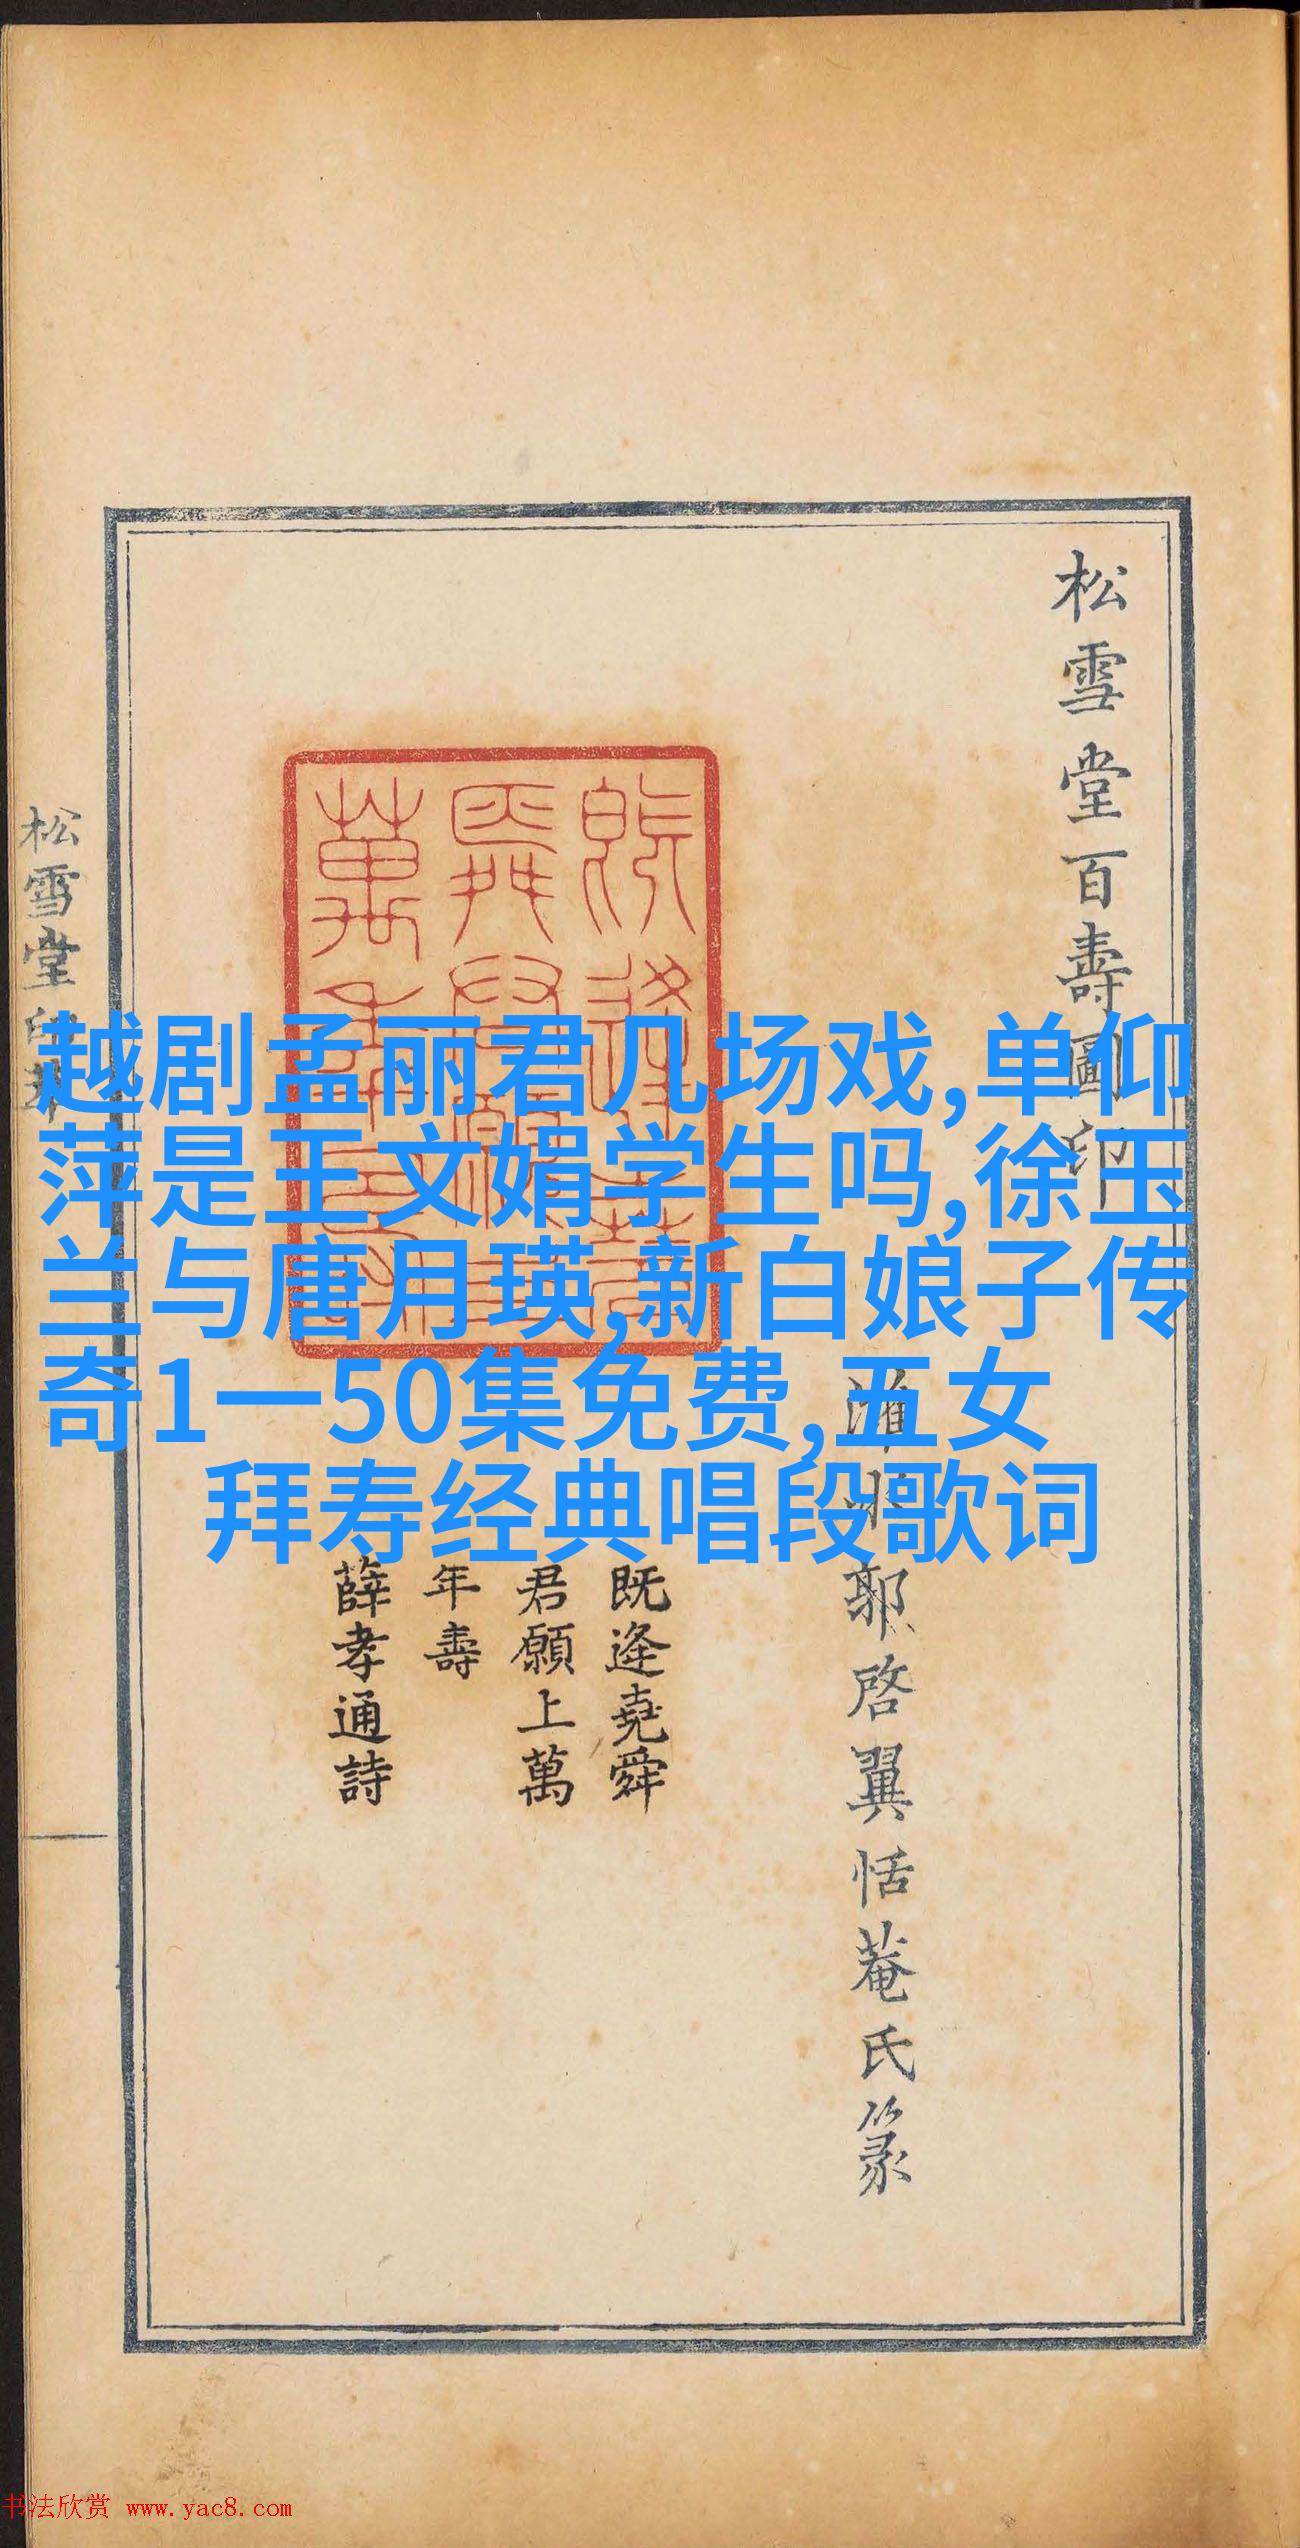 松雪堂百壽圖印
濰水郭啓翼恬菴氏篆
既逢堯舜
君願上萬
年壽
薛孝通詩
松雪堂印
越剧孟丽君几场戏,单仰
萍是王文娟学生吗,徐玉
兰与唐月瑛,新白娘子传
奇1一50集免费,五女
拜寿经典唱段歌词
书法欣赏 www.yac8.com